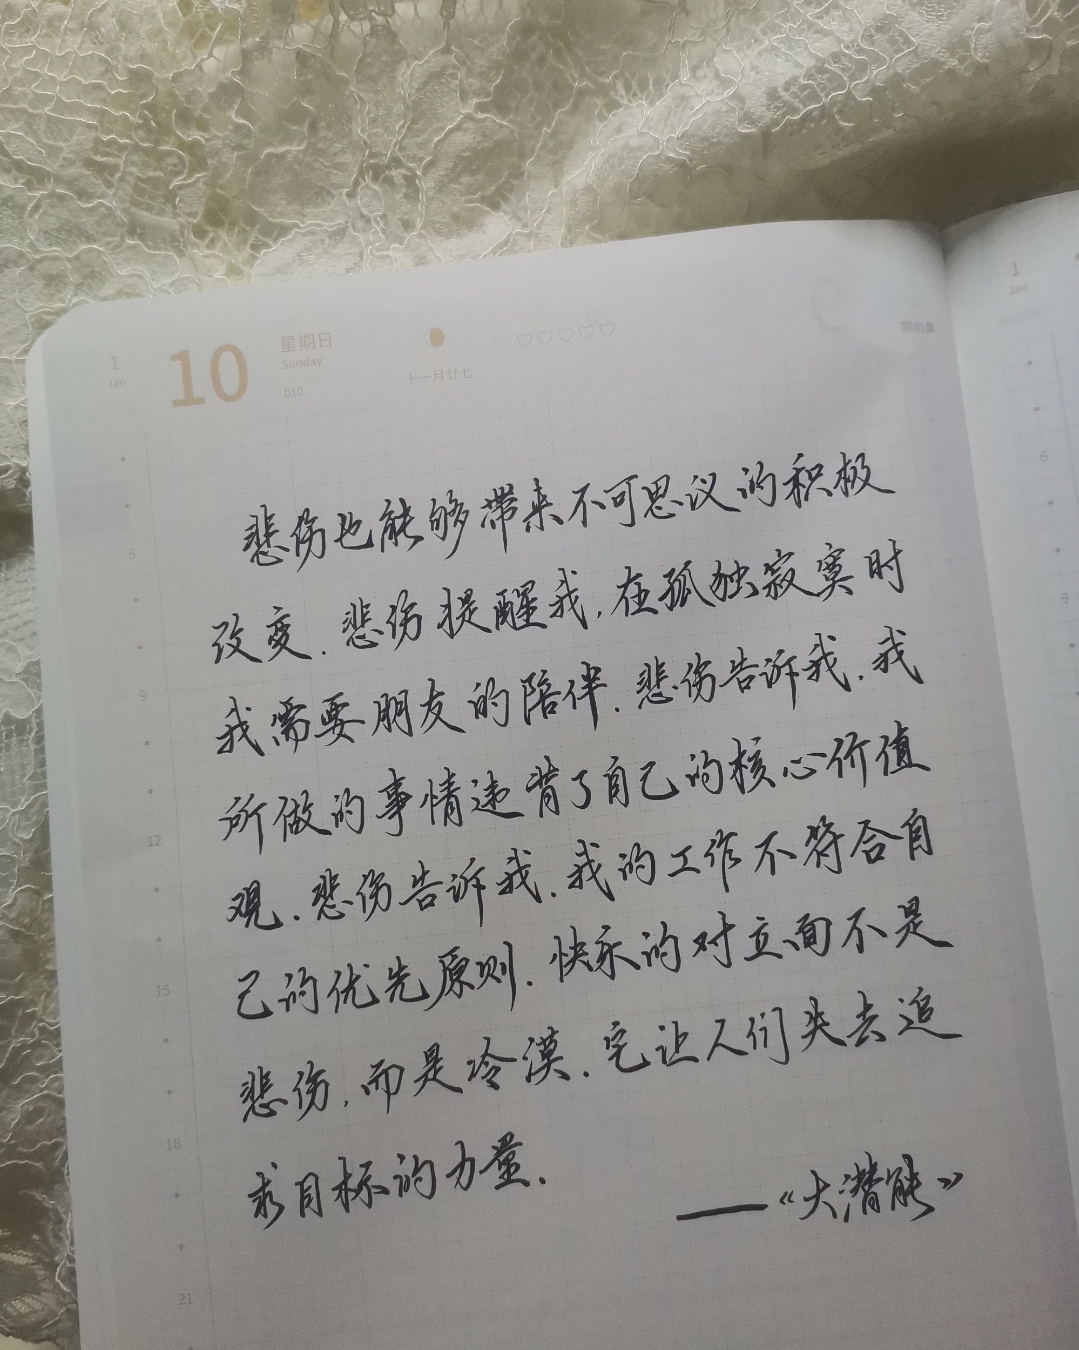 1
Jan
10
星期日
Sunday
010
十一月廿七
1
Jan
悲伤也能够带来不可思议的积极
改变.悲伤提醒我.在孤独寂寞时
我需要朋友的陪伴.悲伤告诉我.我
所做的事情违背了自己的核心价值
观.悲伤告诉我.我的工作不符合自
己的优先原则.快乐的对立面不是
悲伤.而是冷漠.它让人们失去追
求目标的力量.
——《大潜能》
6
9
12
15
18
21
6
9